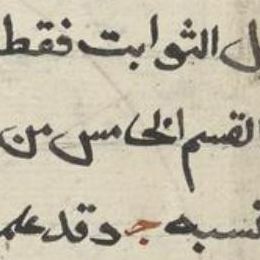 ل الثوابت فقط
القسم الخامس من
نسبه ج وقد علم